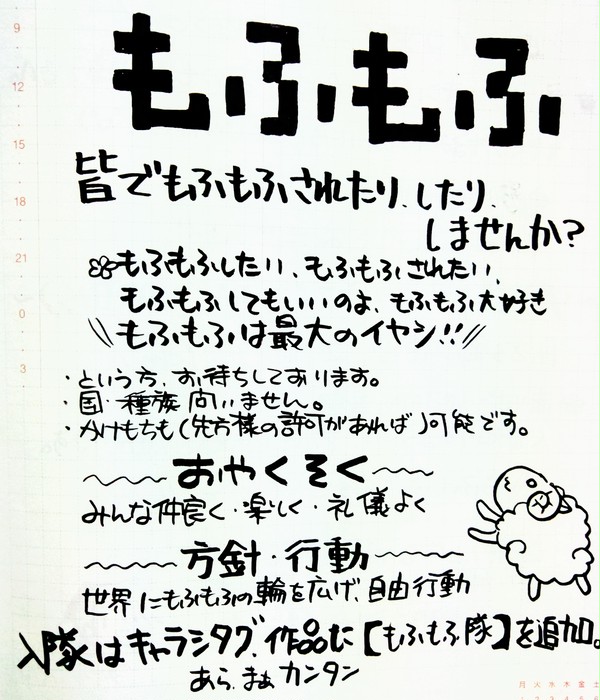 もふもふ
皆でもふもふされたり、したり、
しませんか?
もふもふしたい、もふもふされたい、
もふもふしてもいいのよ、もふもふ大好き
\\もふもふは最大のイヤシ!!//
・という方、お待ちしております。
・国・種族 問いません。
・かけもちも(先方様の許可があれば)可能です。
〜〜おやくそく〜〜
みんな仲良く・楽しく・礼儀よく
〜〜方針・行動〜〜
世界にもふもふの輪を広げ、自由行動
入隊はキャラシタグ、作品に【もふもふ隊】を追加。
あら、まぁ カンタン
9
12
15
18
21
0
3
月 火 水 木 金 土
1 2 3 4 5